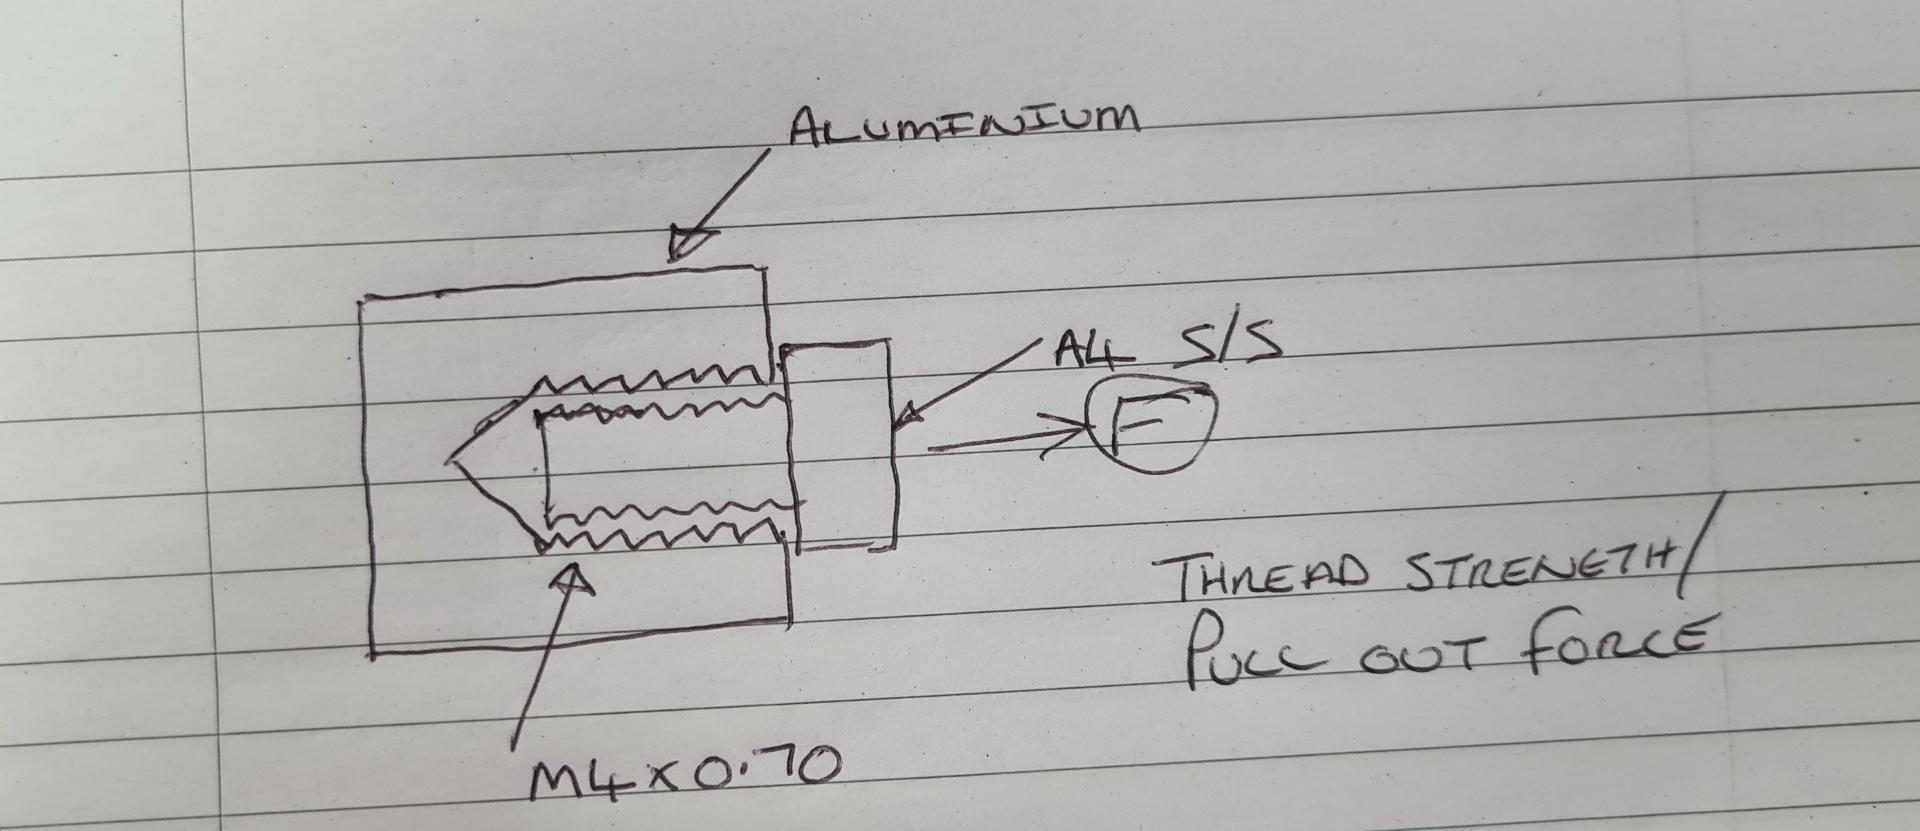 ALUMINIUM
A4 S/S
F
THREAD STRENGTH/
PULL OUT FORCE
M4x0.70